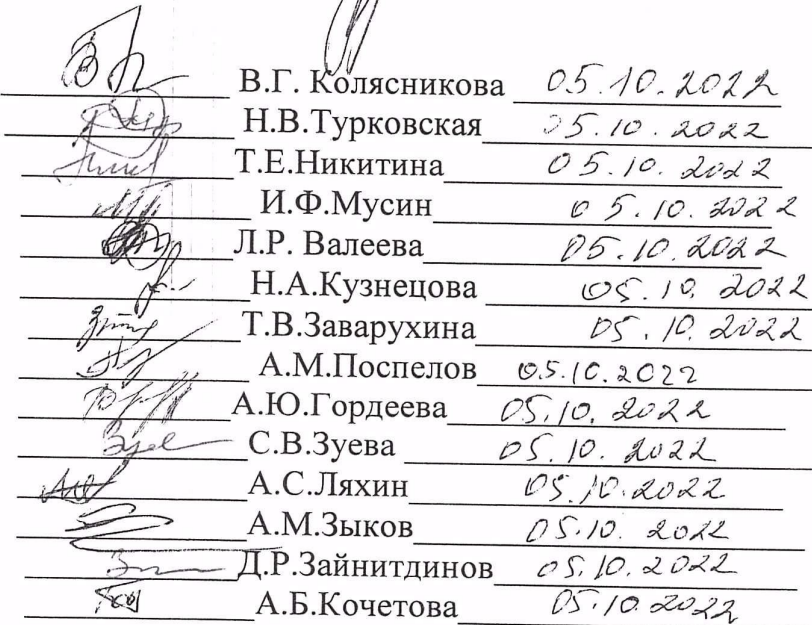 В.Г. Колясникова 05.10.2022
Н.В.Турковская 05.10.2022
Т.Е.Никитина 05.10.2022
И.Ф.Мусин 05.10.2022
Л.Р. Валеева 05.10.2022
Н.А.Кузнецова 05.10.2022
Т.В.Заварухина 05.10.2022
А.М.Поспелов 05.10.2022
А.Ю.Гордеева 05.10.2022
С.В.Зуева 05.10.2022
А.С.Ляхин 05.10.2022
А.М.Зыков 05.10.2022
Д.Р.Зайнитдинов 05.10.2022
А.Б.Кочетова 05.10.2022